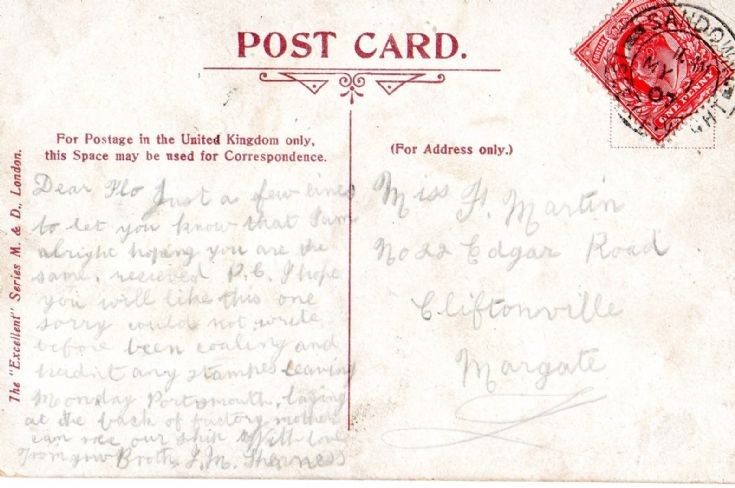 POST CARD.
SANDOWN
MY
ONE PENNY
For Postage in the United Kingdom only,
this Space may be used for Correspondence.
(For Address only.)
The "Excellent" Series M. & D., London.
Dear Flo Just a few lines
to let you know that I am
alright hoping you are the
same. recieved P.C. I hope
you will like this one
sorry could not write
before been coaling and
any stampes leaving
Monday Portsmouth, laying
at the back of factory mother
can see our ship With love
from your Broth J.M.
Miss F. Martin
No 22 Edgar Road
Cliftonville
Margate